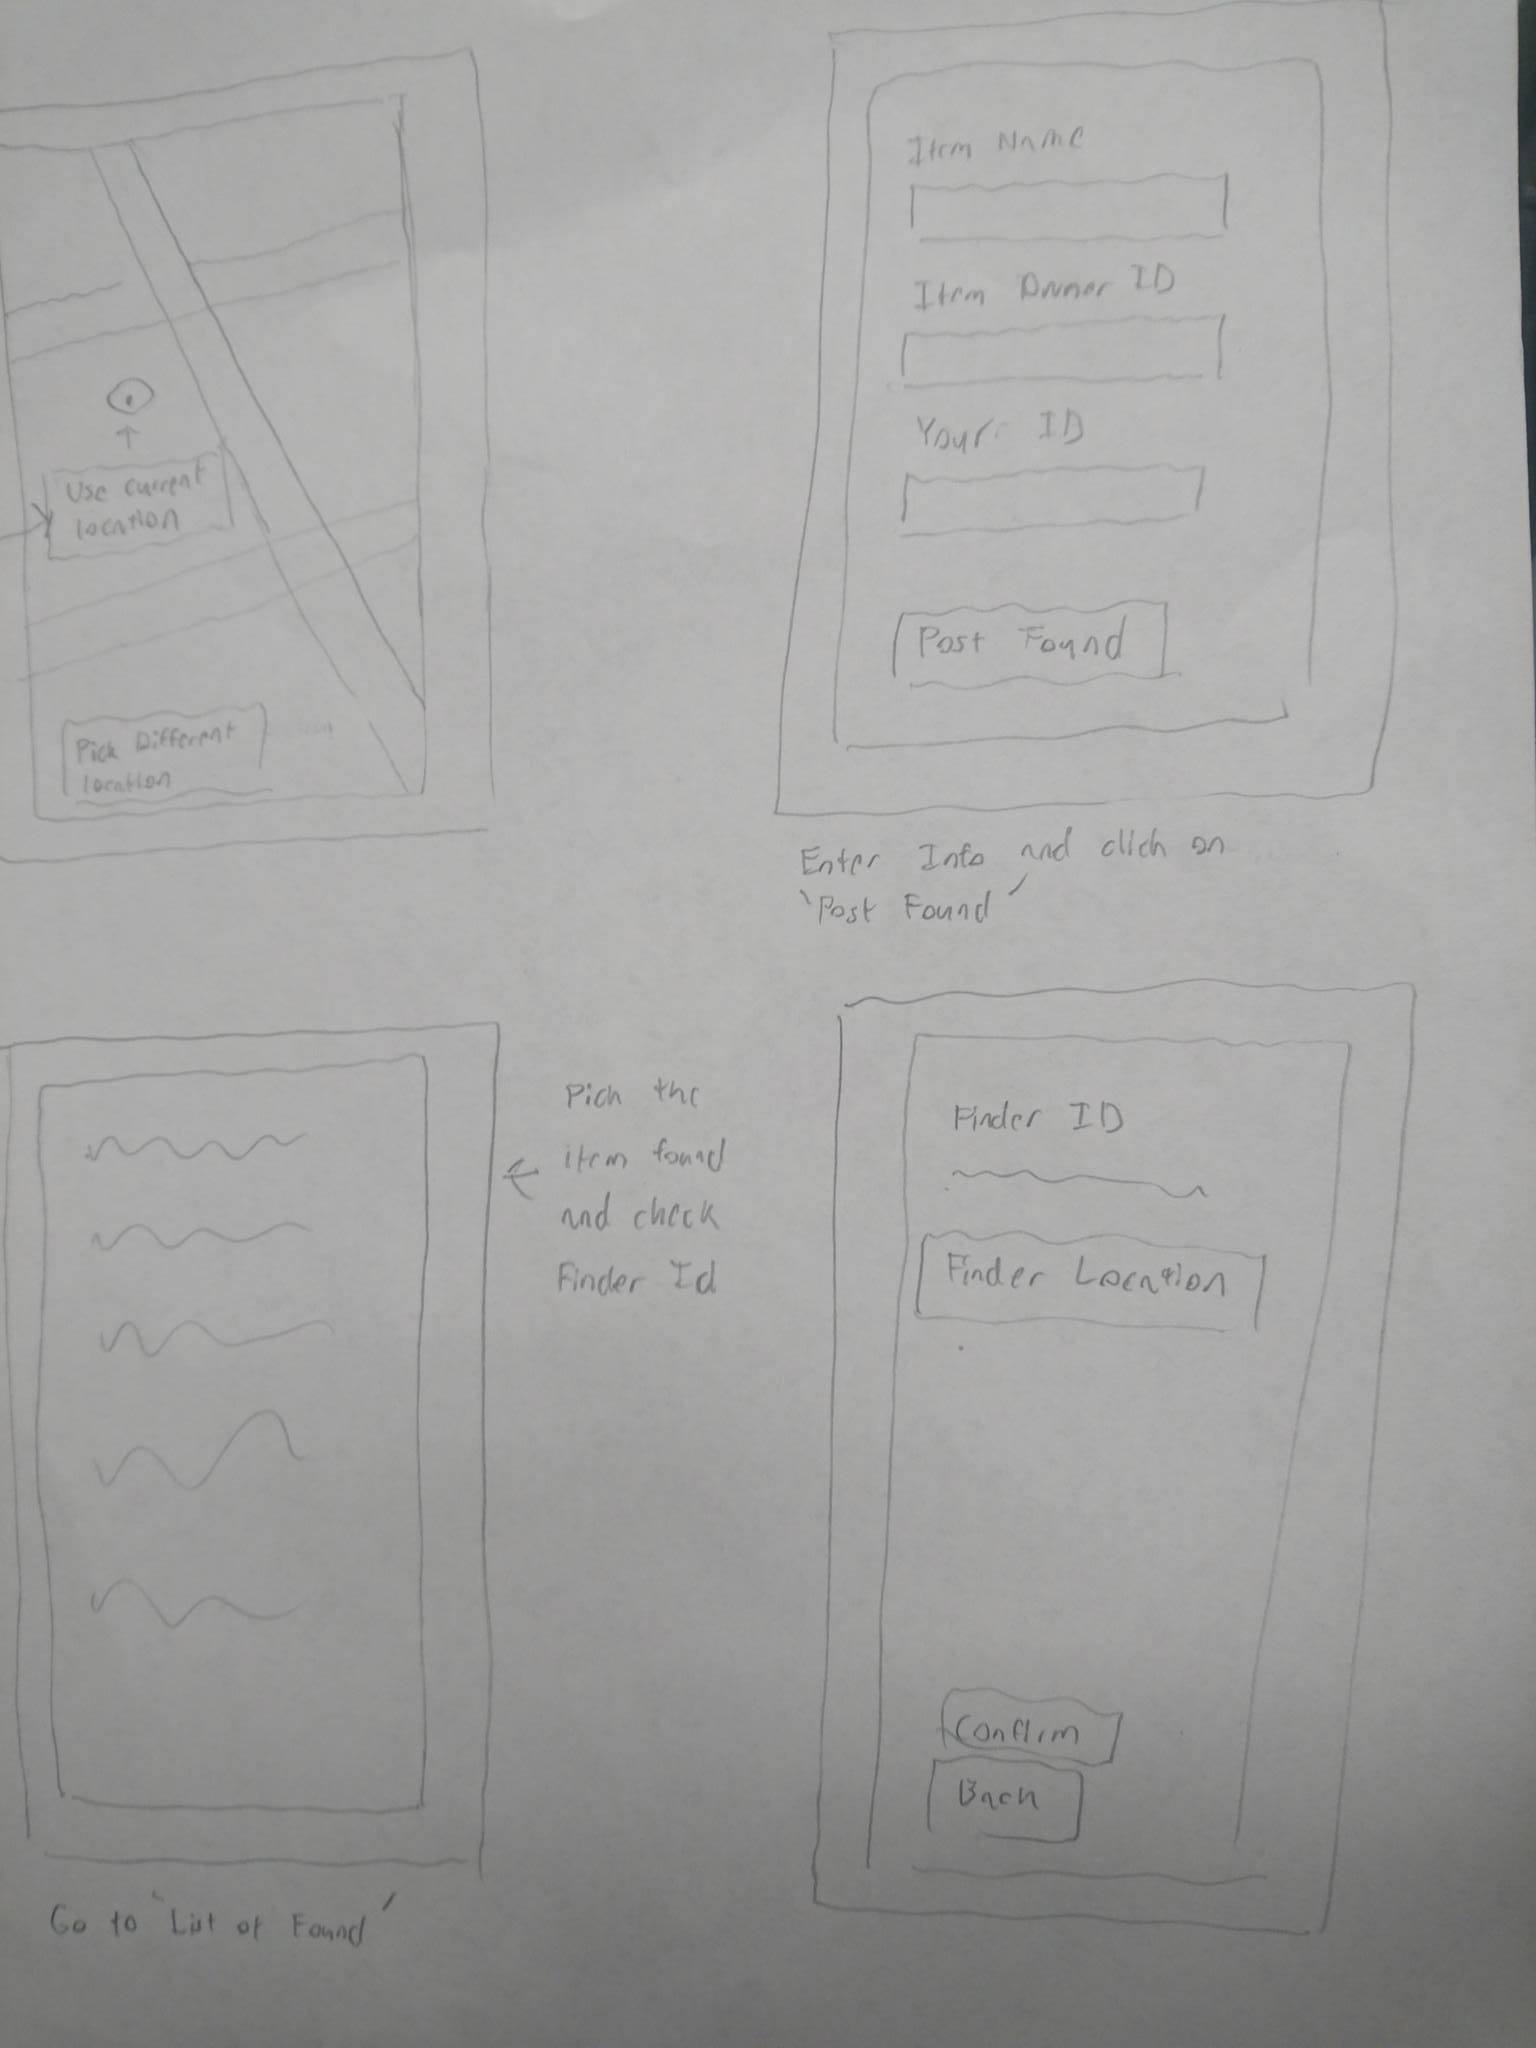 Use current
location
Pick Different
location
Item Name
Item Owner ID
Your ID
Post Found
Enter Info and click on
'Post Found'
Pick the
item found
and check
Finder Id
Go to 'List of Found'
Finder ID
Finder Location
Confirm
Back